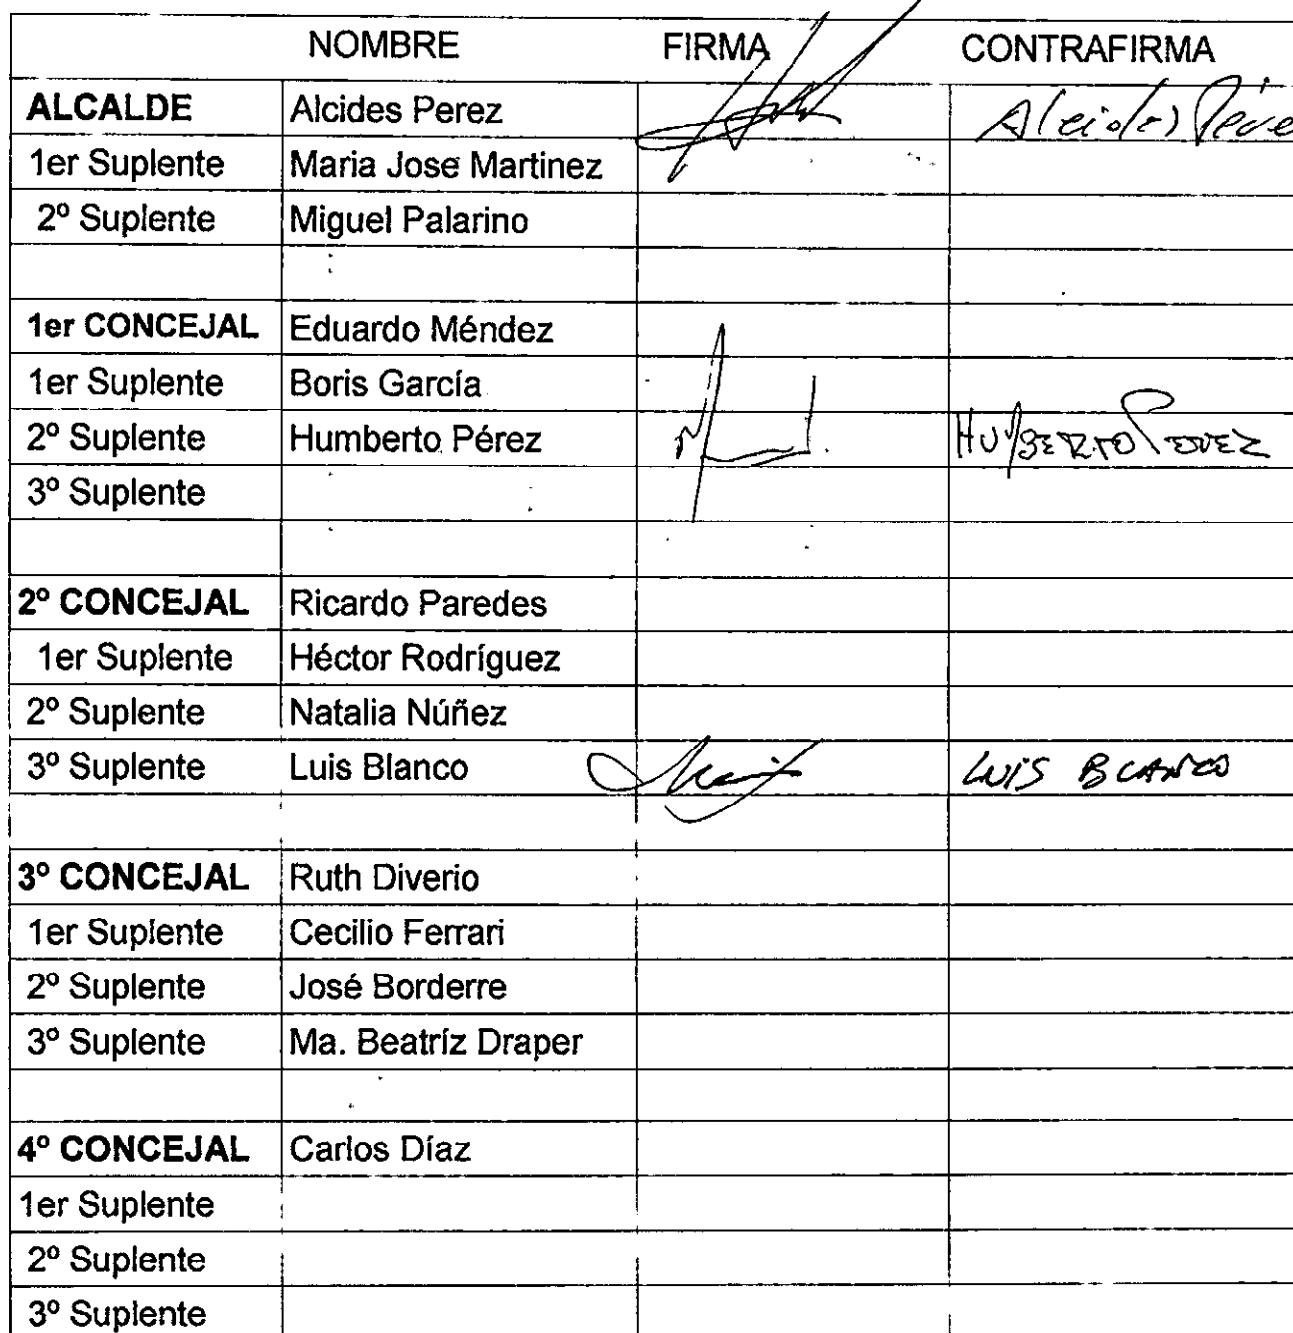 NOMBRE FIRMA CONTRAFIRMA
ALCALDE Alcides Perez Alcides Pére
1er Suplente Maria Jose Martinez
2º Suplente Miguel Palarino
1er CONCEJAL Eduardo Méndez
1er Suplente Boris García
2º Suplente Humberto Pérez HUMBERTO PEREZ
3º Suplente
2º CONCEJAL Ricardo Paredes
1er Suplente Héctor Rodríguez
2º Suplente Natalia Núñez
3º Suplente Luis Blanco LUIS BLANCO
3º CONCEJAL Ruth Diverio
1er Suplente Cecilio Ferrari
2º Suplente José Borderre
3º Suplente Ma. Beatríz Draper
4º CONCEJAL Carlos Díaz
1er Suplente
2º Suplente
3º Suplente